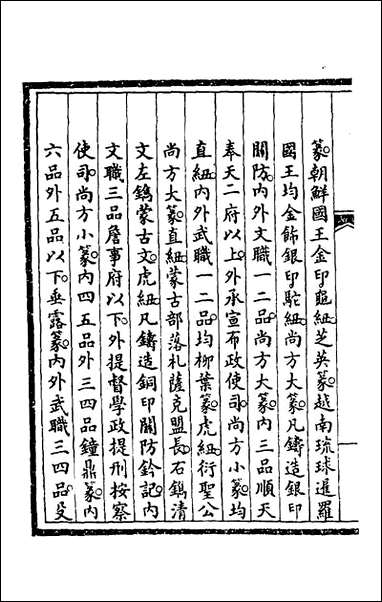 篆朝鮮國王金印龜紐芝英篆越南琉球暹羅
國王均金飾銀印駝紐尚方大篆凡鑄造銀印
關防內外文職一二品尚方大篆內三品順天
奉天二府以上外承宣布政使司尚方小篆均
直紐內外武職一二品均柳葉篆虎紐衍聖公
尚方大篆直紐蒙古部落札薩克盟長石鐫清
文左鐫蒙古文虎紐凡鑄造銅印關防鈐記內
文職三品詹事府以下外提督學政提刑按察
使司尚方小篆內四五品外三四品鐘鼎篆內
六品外五品以下垂露篆內外武職三四品殳